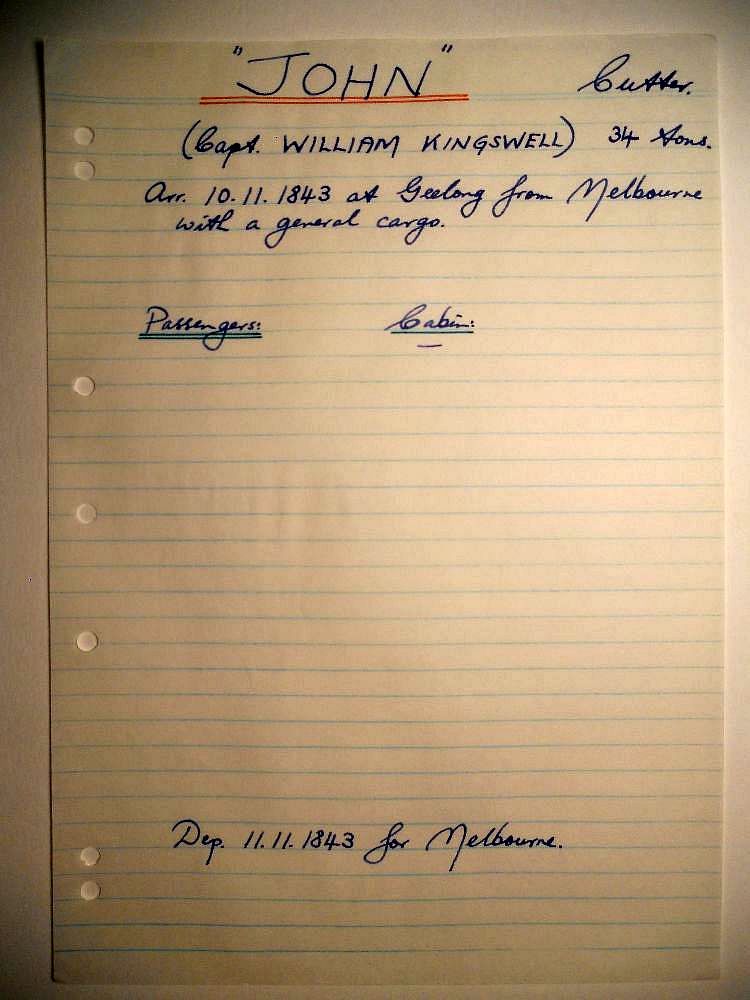 "JOHN" Cutter.
(Capt. WILLIAM KINGSWELL) 34 tons.
Arr. 10.11.1843 at Geelong from Melbourne
with a general cargo.
Passengers: Cabin:
—
Dep. 11.11.1843 for Melbourne.